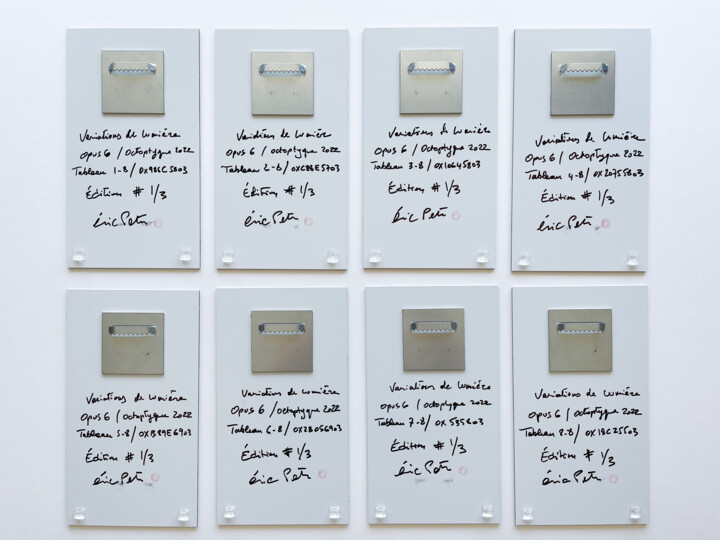 Variations de Lumière
Opus 6 / Octoptyque 2022
Tableau 1-8 / 0x986C5803
Édition # 1/3
éric Petr
Variations de Lumière
Opus 6 / Octoptyque 2022
Tableau 2-8 /
Édition # 1/3
éric Petr
Variations de Lumière
Opus 6 / Octoptyque 2022
Tableau 3-8 / 0x10645803
Édition # 1/3
éric Petr
Variations de Lumière
Opus 6 / Octoptyque 2022
Tableau 4-8 / 0x20755803
Édition # 1/3
éric Petr
Variations de Lumière
Opus 6 / Octoptyque 2022
Tableau 5-8 /
Édition # 1/3
éric Petr
Variations de Lumière
Opus 6 / Octoptyque 2022
Tableau 6-8 / 0x2B056903
Édition # 1/3
éric Petr
Variations de Lumière
Opus 6 / Octoptyque 2022
Tableau 7-8 /
Édition # 1/3
éric Petr
Variations de Lumière
Opus 6 / Octoptyque 2022
Tableau 8-8 / 0x18C25503
Édition # 1/3
éric Petr